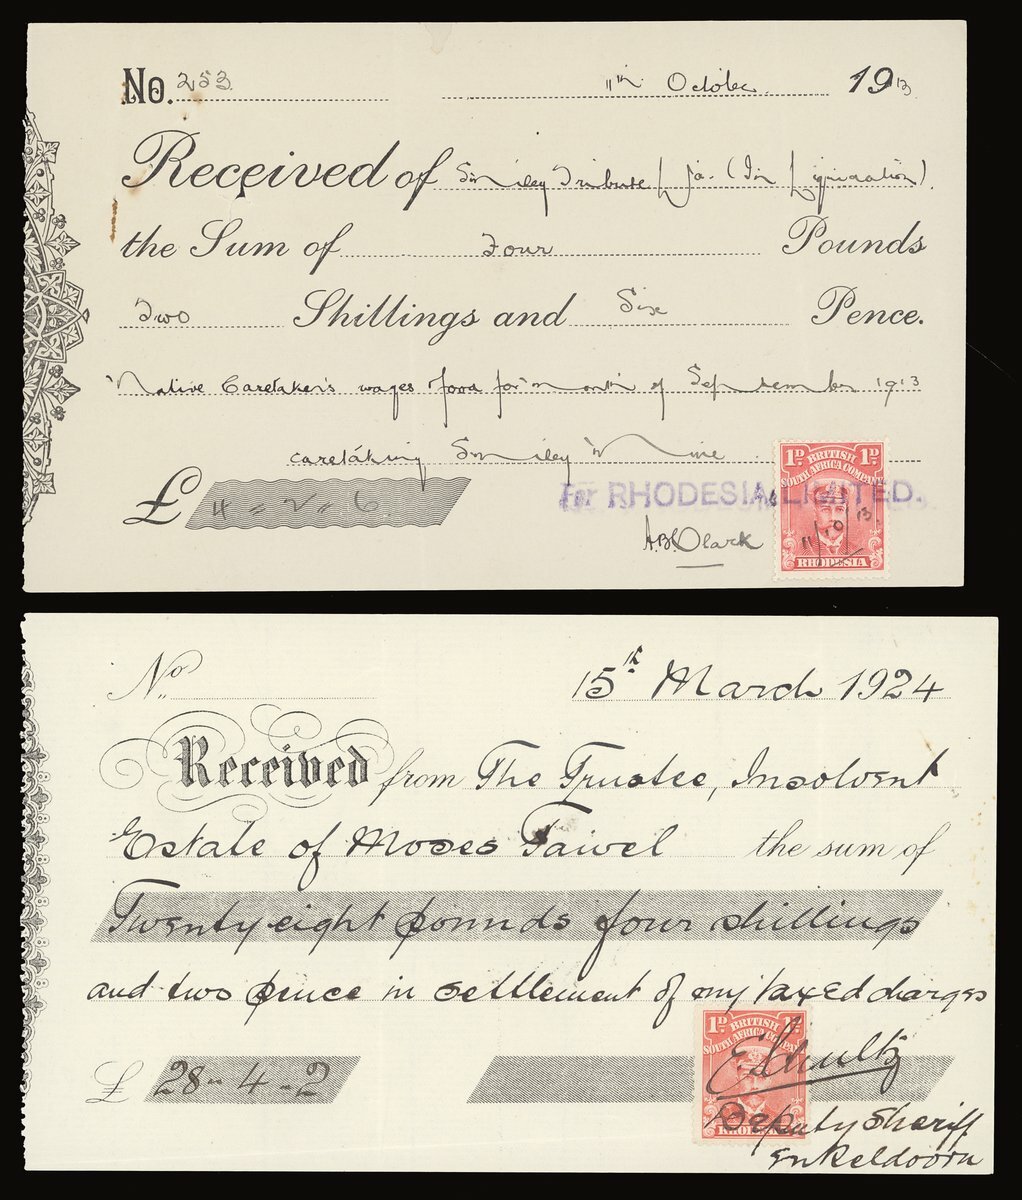 No. 253 11th October 1913
Received of Smiley Tribute Ltd. (In Liquidation).
the Sum of Four Pounds
Two Shillings and Six Pence.
Native Caretaker's wages food for month of September 1913
caretaking Smiley Mine.
£ 4 = 2 = 6
For RHODESIA LIMITED.
A.B. Clark
1D 1D
BRITISH
SOUTH AFRICA COMPANY
11/10 13
RHODESIA
No. 15th March 1924
Received from The Trustee, Insolvent
Estate of Moses Taivel the sum of
Twenty eight pounds four shillings
and two pence in settlement of my taxed charges
£ 28 - 4 - 2
1D 1D
BRITISH
SOUTH AFRICA COMPANY
RHODESIA
E Schultz
Deputy Sheriff
Enkeldoorn